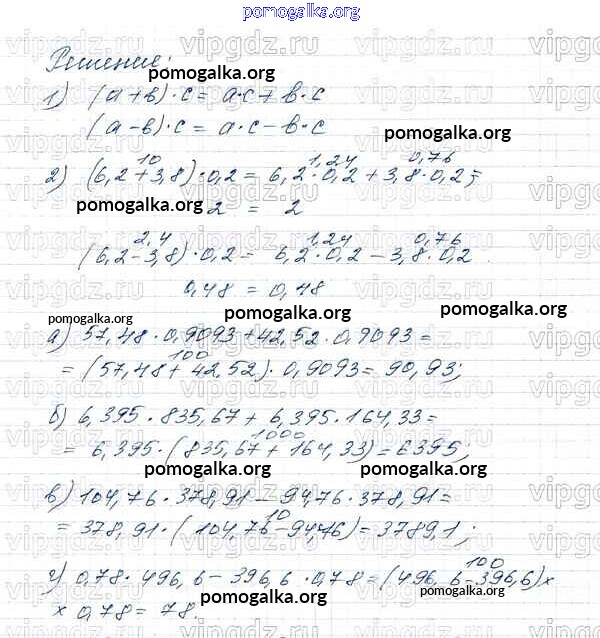 pomogalka.org
Решение:
pomogalka.org
1) (a+в)·c = a·c + в·c
(a-в)·c = a·c - в·c
pomogalka.org
10 1,24 0,76
2) (6,2+3,8)·0,2 = 6,2·0,2 + 3,8·0,2;
pomogalka.org 2 = 2
2,4 1,24 0,76
(6,2-3,8)·0,2 = 6,2·0,2 - 3,8·0,2.
0,48 = 0,48
pomogalka.org pomogalka.org
а) 57,48·0,9093 + 42,52·0,9093 =
100
= (57,48 + 42,52)·0,9093 = 90,93;
pomogalka.org
б) 6,395·835,67 + 6,395·164,33 =
1000
= 6,395·(835,67 + 164,33) = 6395;
pomogalka.org pomogalka.org
в) 104,76·378,91 - 94,76·378,91 =
10
= 378,91·(104,76 - 94,76) = 3789,1;
100
г) 0,78·496,6 - 396,6·0,78 = (496,6 - 396,6) х
pomogalka.org pomogalka.org
х 0,78 = 78.
vipgdz.ru